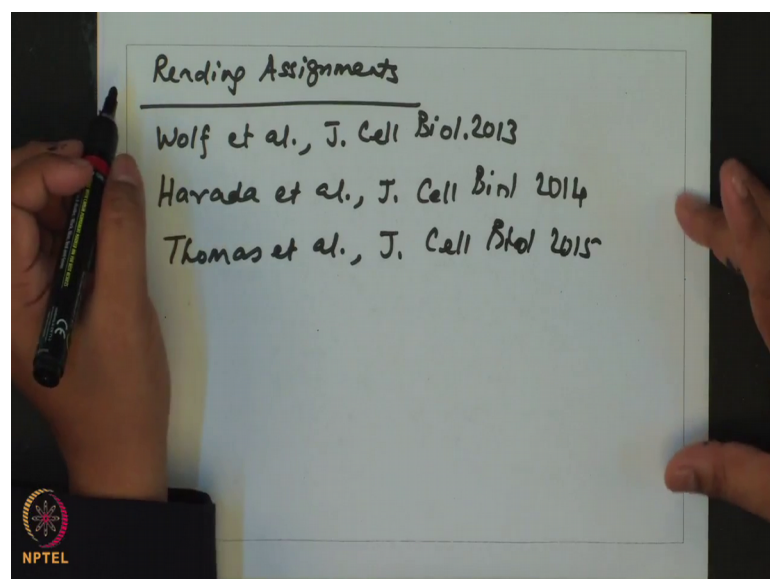 Reading Assignments
Wolf et al., J. Cell Biol. 2013
Harada et al., J. Cell Biol 2014
Thomas et al., J. Cell Biol 2015
NPTEL